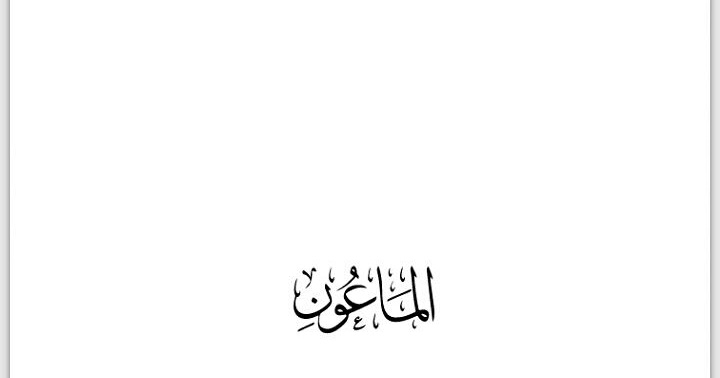 المَاعُونِ